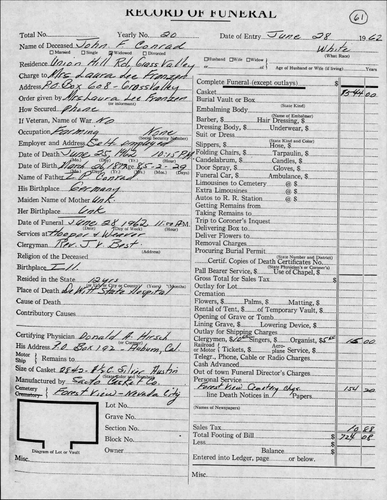 RECORD OF FUNERAL
61
Total No. Yearly No. 20 Date of Entry June 28 1962
Name of Deceased John F. Conrad White
Married Single Widowed Divorced (What Race)
Residence Union Hill Rd, Grass Valley Husband Wife Widow Age of Husband or Wife (if living)
Charge to Mrs Laura Lee Franzen
Address P.O Box 608 - Grass Valley
Order given by Mrs Laura Lee Franzen
How Secured phone
If Veteran, Name of War No
Occupation Farming None
Employer and Address Self employed
Date of Death June 25, 1962 10:15 P.M.
Date of Birth
Name of Father Conrad
His Birthplace Germany
Maiden Name of Mother Unk.
Her Birthplace Unk
Date of Funeral June 28 1962
Services at Hooper & Weaver
Clergyman Rev. J. V. Best
Religion of the Deceased
Birthplace Ill.
Resided in the State
Place of Death De Witt State Hospital
Cause of Death
Contributory Causes
Certifying Physician Donald A. Hirsh
His Address P.O Box 192 Auburn, Cal.
Motor Ship Remains to
Size of Casket
Manufactured by Santa Casket Co.
Cemetery Crematory Forest View - Nevada City
Lot No.
Grave No.
Section No.
Block No.
Owner
Diagram of Lot or Vault
Misc.
Complete Funeral (except outlays) $
Casket $544.00
Burial Vault or Box
(State Kind)
Embalming Body
(Name of Embalmer)
Barber, $ Hair Dressing, $
Dressing Body, $ Underwear, $
Suit or Dress
(State Kind and Color)
Slippers, $ Hose, $
Folding Chairs, $ Tarpaulin, $
Candelabrum, $ Candles, $
Door Spray, $ Gloves, $
Funeral Car, $ Ambulance, $
Limousines to Cemetery @ $
Extra Limousines @ $
Autos to R. R. Station @ $
Getting Remains
Taking Remains
Trip to Coroner's Inquest
Delivering Box
Deliver Flowers
Removal Charges
Procuring Burial Permit
(State Number and County)
Certif. Copies of Death Certificates No.
(State Physician's or Coroner's)
Pall Bearer Service, $ Use of Chapel, $
Gross Total for Sales Tax $
Outlay for Lot
Cremation
Flowers, $ Palms, $ Matting, $
Rental of Tent, $ of Temporary Vault, $
Opening of Grave or Tomb
Lining Grave, $ Lowering Device, $
Outlay for Shipping Charges
Clergymen, $10.00 Singers, $ Organist, $5.00 15 00
Railroad Tickets $ Aeroplane Service, $ Motor Service, $
Telegr., Phone, Cable or Radio Charges
Cash Advanced
Out of Town Funeral Director's Charges
Personal Service
Forest View Cemetery chge. 154 20
line Death Notices in Papers
(Names of Newspapers)
Sales Tax 10 88
Total Footing of Bill $ 724 08
Less
Balance $
Entered into Ledger, page or below.
Misc.